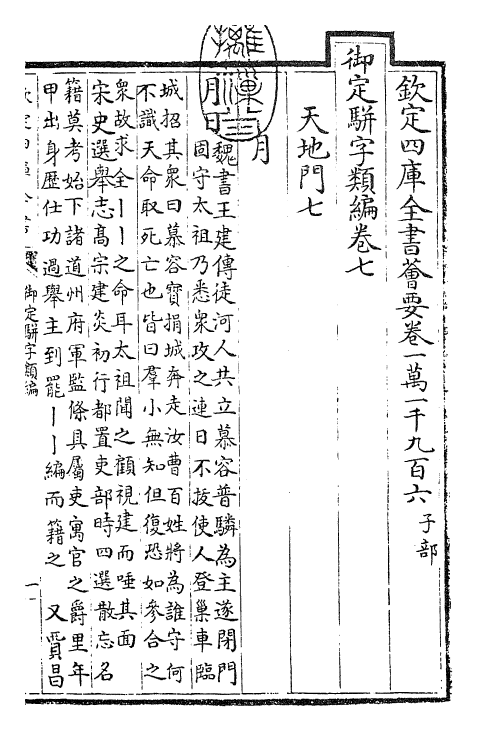 欽定四庫全書薈要卷一萬一千九百六 子部
御定駢字類編卷七
天地門七
月
月日 魏書王建傳徒河人共立慕容普驎為主遂閉門
固守太祖乃悉衆攻之連日不拔使人登巢車臨
城招其衆曰慕容寶捐城奔走汝曹百姓將為誰守何
不識天命取死亡也皆曰羣小無知但復恐如參合之
衆故求全丨丨之命耳太祖聞之顧視建而唾其面
宋史選舉志高宗建炎初行都置吏部時四選散忘名
籍莫考始下諸道州府軍監條具屬吏寓官之爵里年
甲出身歴仕功過舉主到罷丨丨編而籍之 又賈昌
御定駢字類編
一